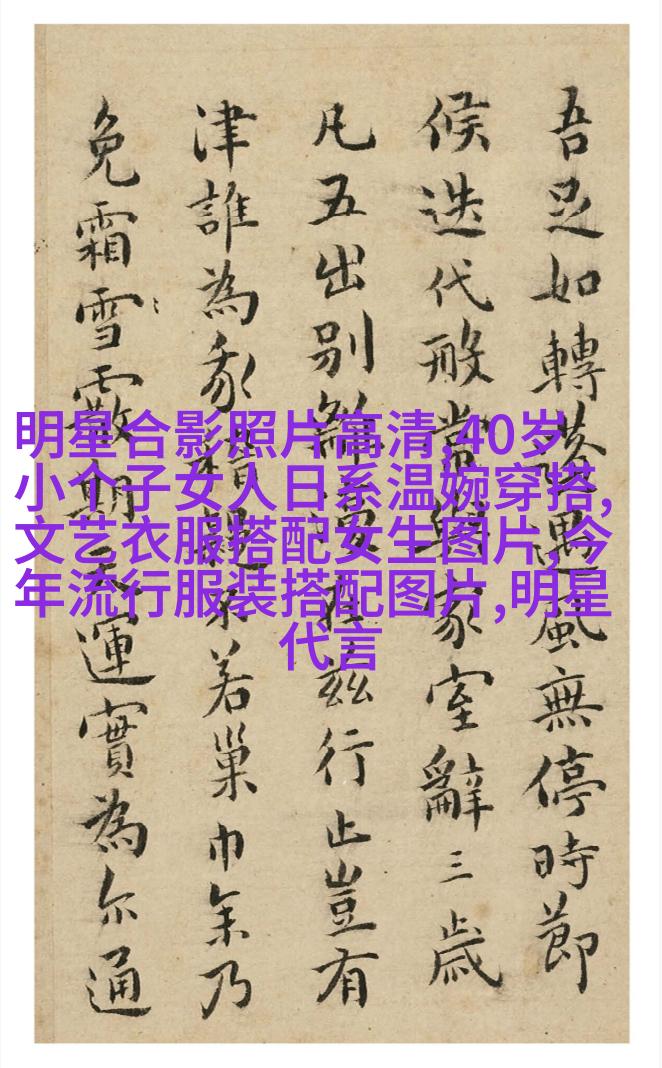 吾足如轉遇風無停時節
候迭代常家室辭三歲
凡五出別在兹行止豈有
津誰為若巢巾乃
免霜雪期天運實為尔通
明星合影照片高清,40岁
小个子女人日系温婉穿搭,
文艺衣服搭配女生图片,今
年流行服装搭配图片,明星
代言